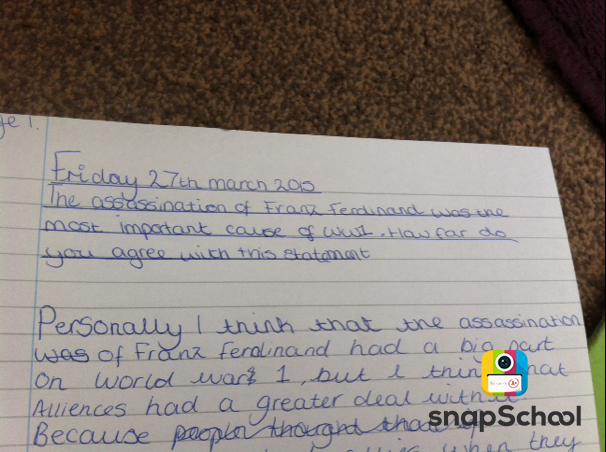 ge 1.
Friday 27th march 2015
The assassination of Franz Ferdinand was the
most important cause of WW1. How far do
you agree with this statement
Personally I think that the assassination
was of Franz Ferdinand had a big part
on world war 1, but I think that
Alliences had a greater deal with
snapSchool
Because people thought that
when they